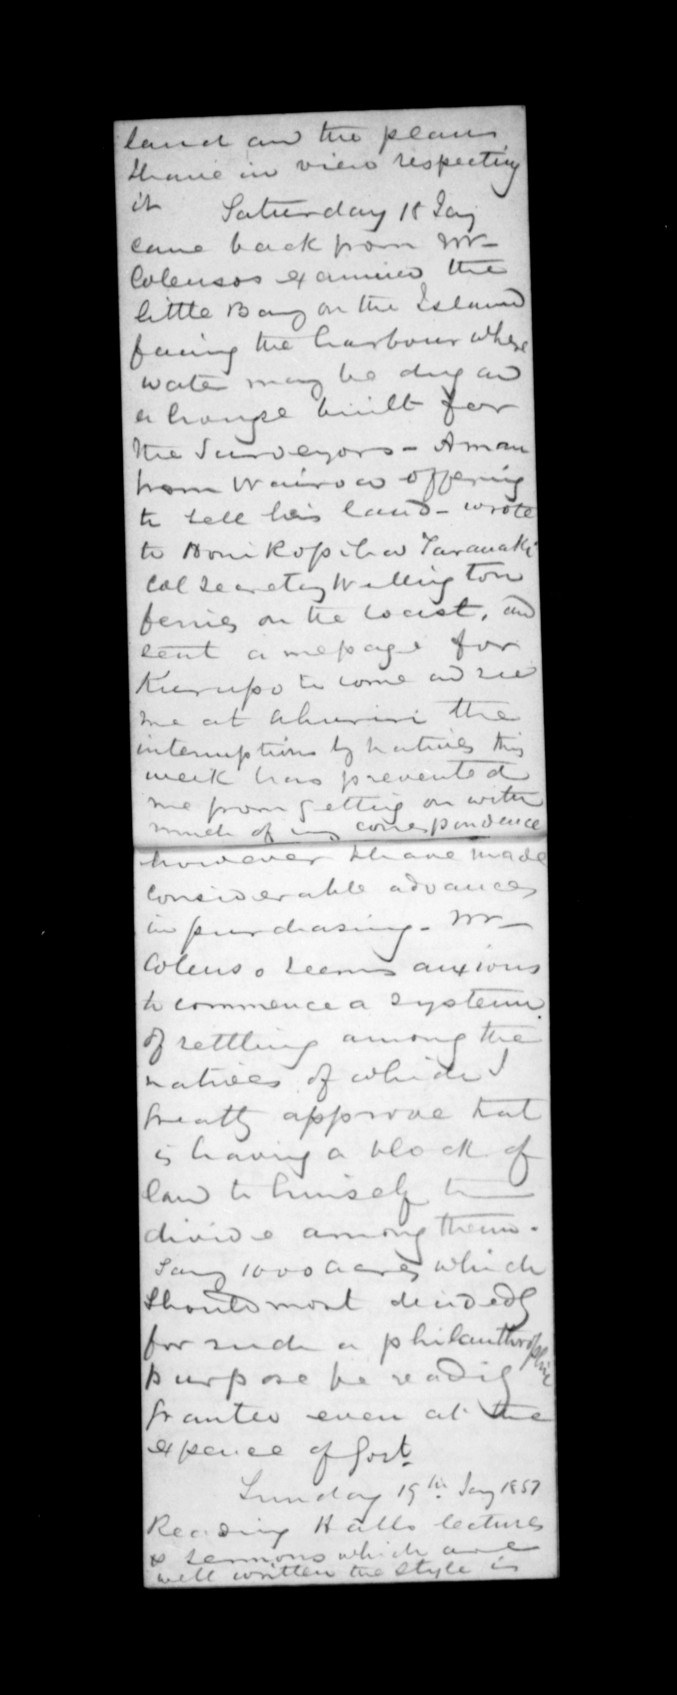 land and the plans
I have in view respecting
it Saturday 18 Jany
came back from Mr
Colensos examined the
little Bay on the Island
facing the harbour where
water may be dug and
a house built for
the Surveyors - A man
from Wairoa offering
to sell his land - wrote
to Honi Ropiha Taranaki
Col Secretary Wellington
ferries on the coast, and
sent a message for
Kurupo to come and see
me at Ahuriri the
interruptions by natives this
week has prevented
me from getting on with
much of my correspondence
however I have made
considerable advances
in purchasing - Mr
Colenso seems anxious
to commence a system
of settling among the
natives of which I
greatly approve that
is having a block of
land to himself to
divide among them.
Say 1000 acres which
should most decidedly
for such a philanthrophic
purpose be readily
granted even at the
expence of Govt.
Sunday 19th Jany 1851
Reading Halls lectures
& sermons which are
well written the style is